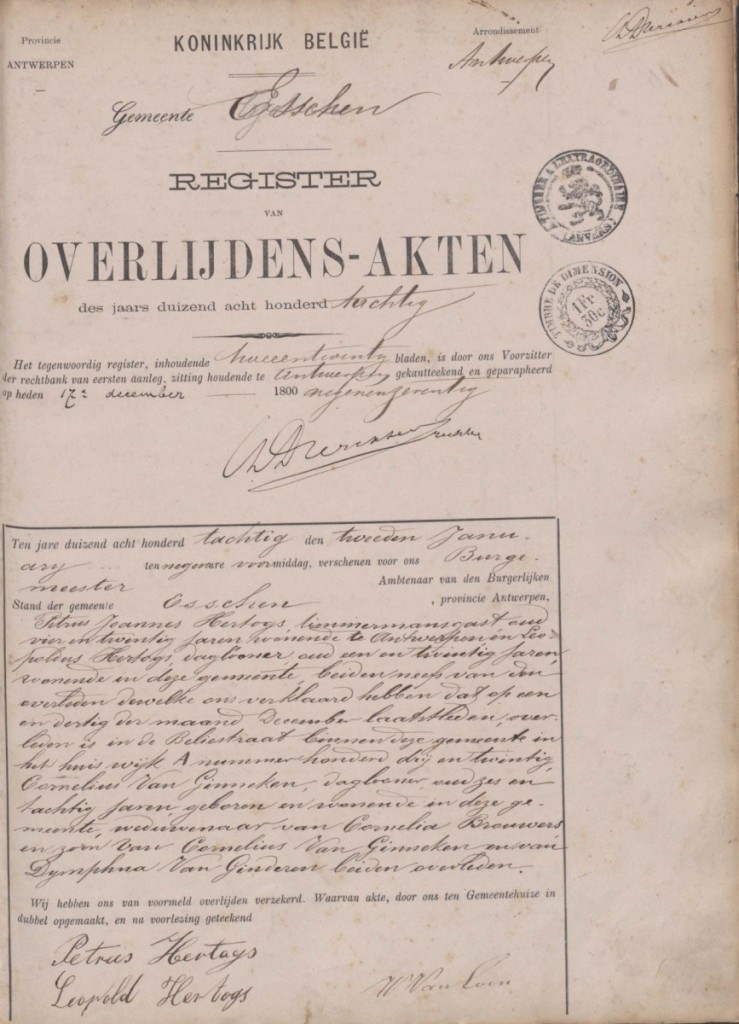 Provincie
ANTWERPEN
KONINKRIJK BELGIË
Arrondissement
Antwerpen
Gemeente Esschen
REGISTER
VAN
OVERLIJDENS-AKTEN
des jaars duizend acht honderd tachtig
TIMBRE A L'EXTRAORDINAIRE
ANVERS
TIMBRE DE DIMENSION
1 Fr
50 c
Het tegenwoordig register, inhoudende tweeentwintig bladen, is door ons Voorzitter
der rechtbank van eersten aanleg, zitting houdende te Antwerpen gekantteekend en geparapheerd
op heden 17n december 1800 negenenzeventig
Ten jare duizend acht honderd tachtig den tweeden Janu-
ary ten negen ure voormiddag, verschenen voor ons Burge-
meester Ambtenaar van den Burgerlijken
Stand der gemeente Esschen, provincie Antwerpen,
Petrus Joannes Hertogs, timmermansgast oud
vier en twintig jaren, wonende te Antwerpen en Leo-
poldus Hertogs, daglooner, oud een en twintig jaren,
wonende in deze gemeente, beiden neefs van den
overleden dewelke ons verklaard hebben dat op een
en dertig der maand December laatstleden, over-
leden is in de Beliestraat binnen deze gemeente in
het huis wijk A nummer honderd drij en twintig,
Cornelius Van Ginneken, daglooner, oud zes en
tachtig jaren, geboren en wonende in deze ge-
meente, weduwenaar van Cornelia Brouwers
en zoon van Cornelius Van Ginneken en van
Dymphna Van Ginderen beiden overleden.
Wij hebben ons van voormeld overlijden verzekerd. Waarvan akte, door ons ten Gemeentehuize in
dubbel opgemaakt, en na voorlezing geteekend
Petrus Hertogs
Leopold Hertogs
W Van Loon